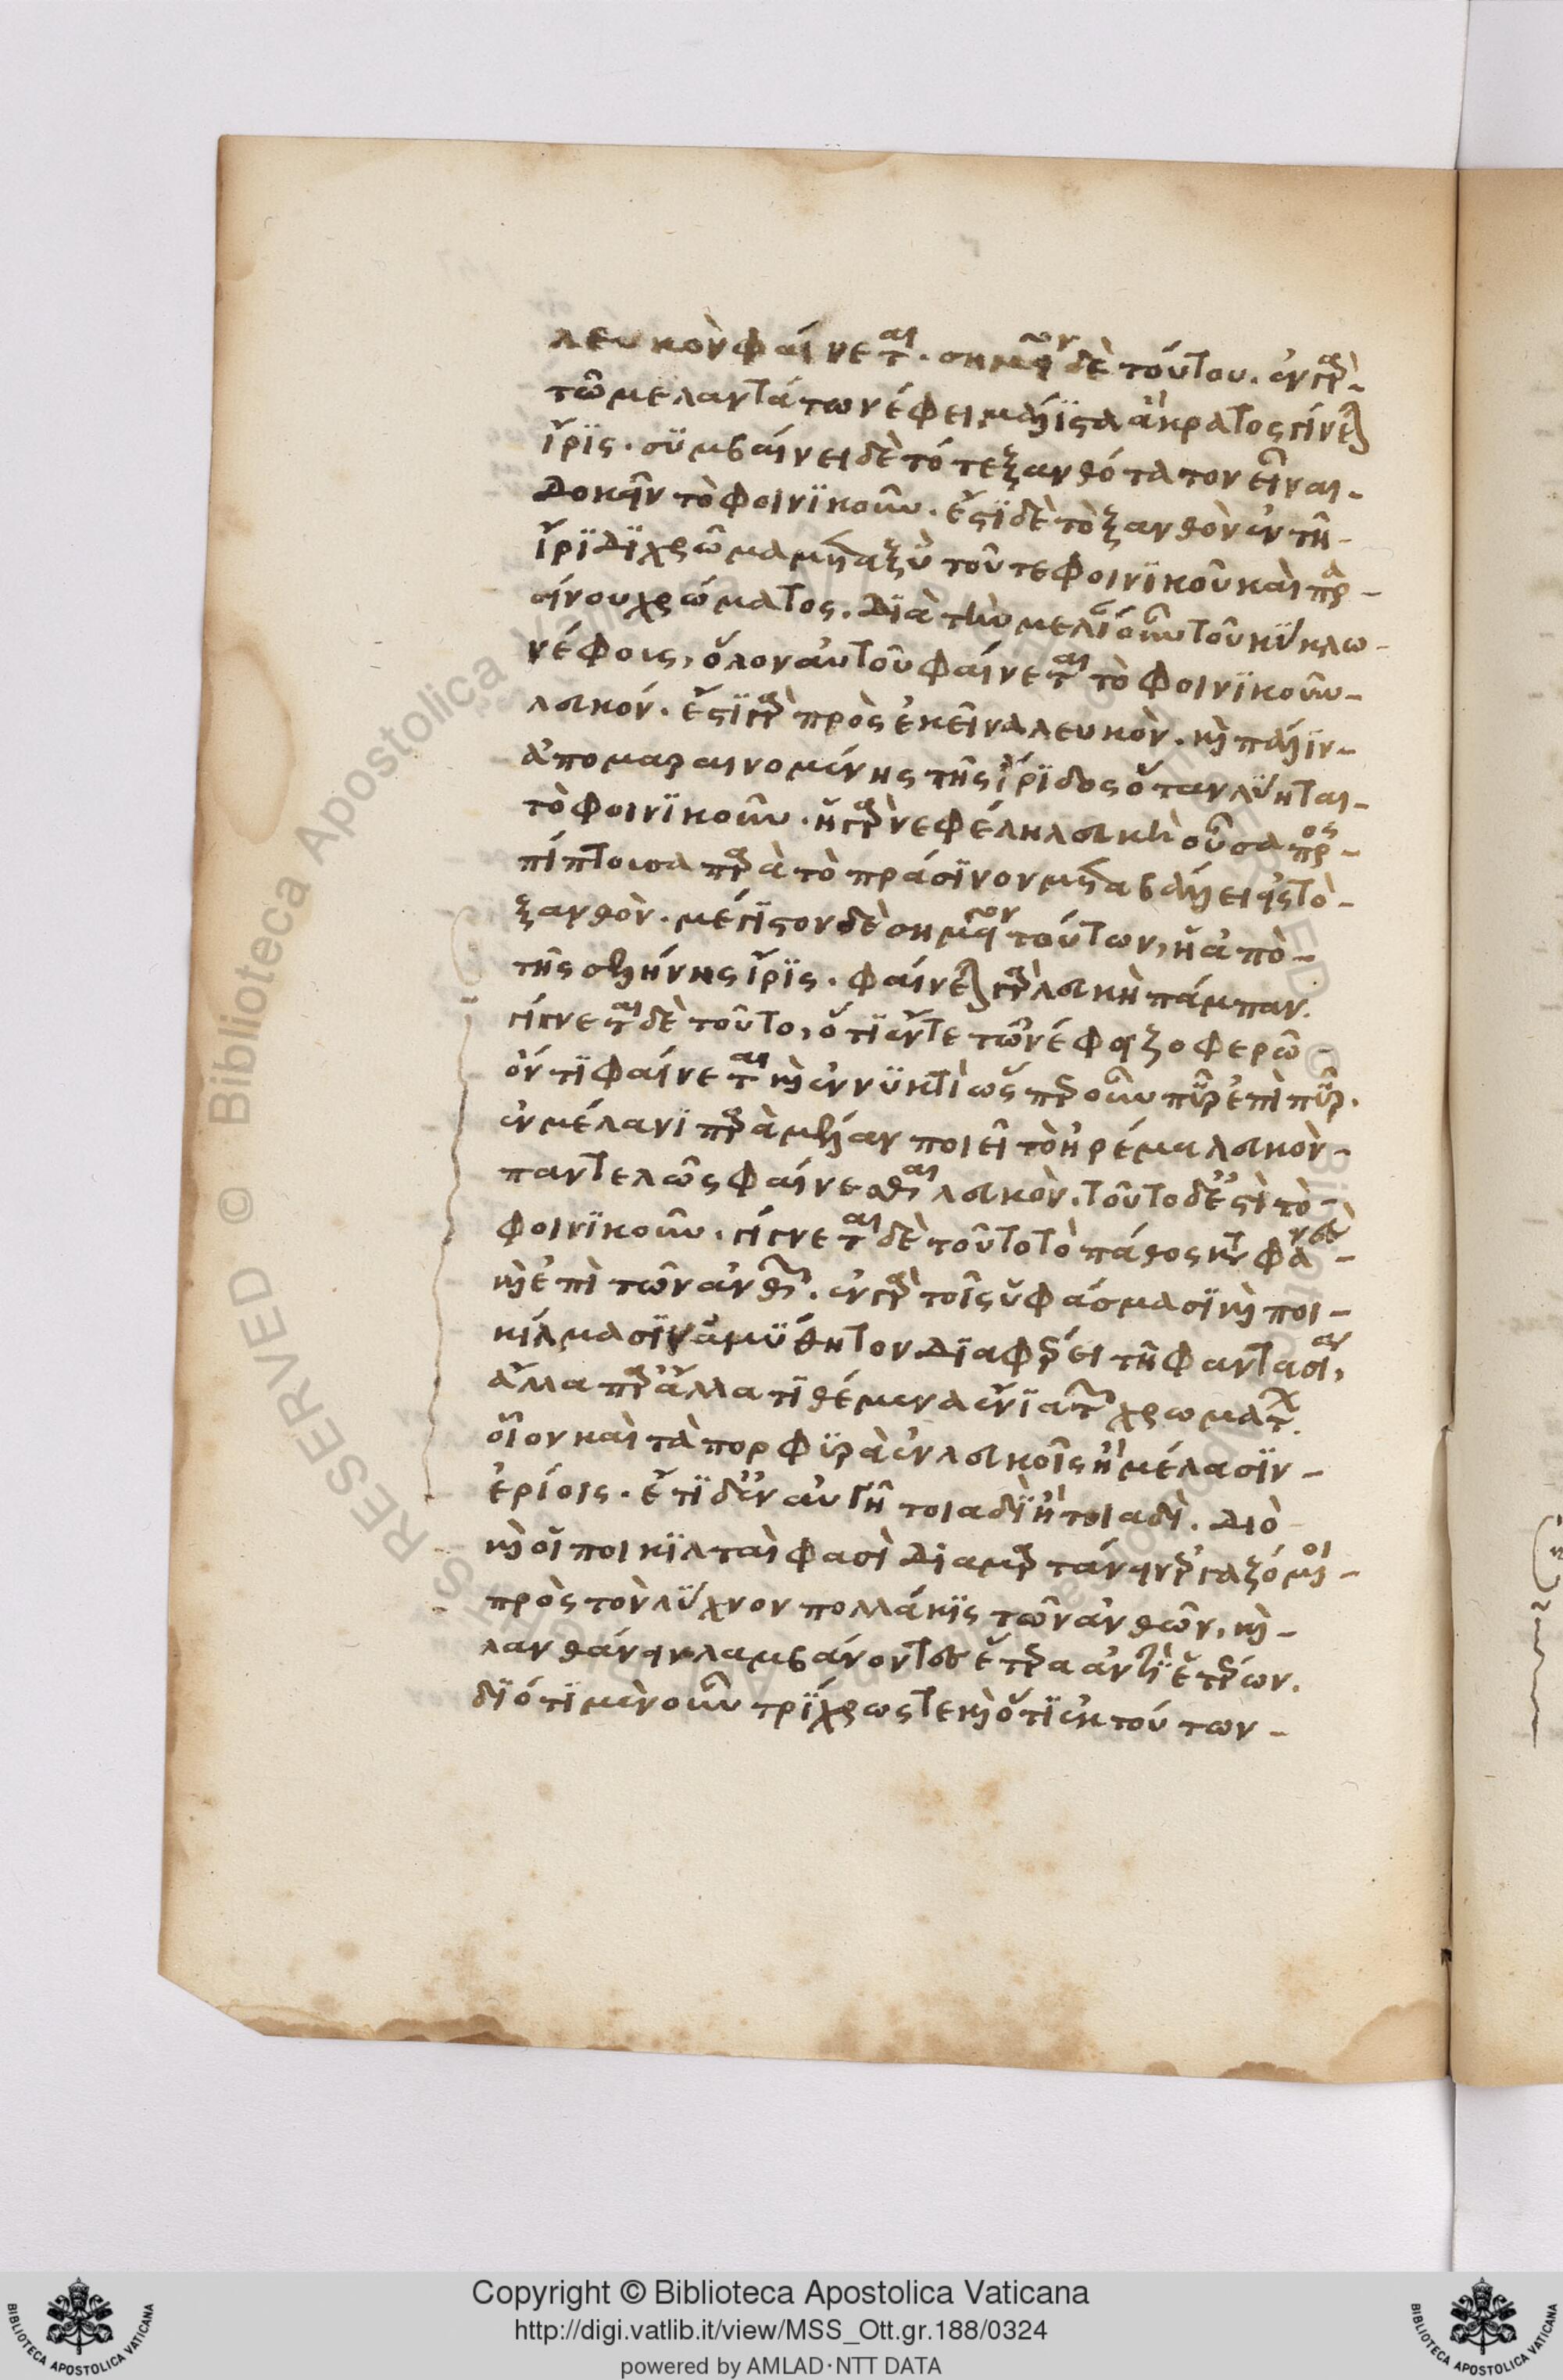 λευκὸν φαίνεται. σημεῖον δὲ τούτου. ἐν γὰρ
τῶ μελαντάτω νέφει μάλϊστα ἄκρατος γίνεται
ἶρϊς. συμβαίνει δὲ τό τε ξανθότατον εἶναι
δοκεῖν τὸ φοινϊκοῦν. ἔστϊ δὲ τὸ ξανθὸν ἐν τῆ
ἴρϊδϊ χρῶμα μεταξὺ τοῦ τε φοινϊκοῦ καὶ πρα
σίνου χρώματος. διὰ τὴν μελανίαν οὖν τοῦ κύκλω
νέφους, ὅλον αὐτοῦ φαίνεται τὸ φοινϊκοῦν
λευκόν. ἔστϊ γὰρ πρὸς ἐκεῖνα λευκὸν. καὶ πάλιν
ἀπομαραινομένης τῆς ἴρϊδος ὅταν λύηται
τὸ φοινϊκοῦν. ἡ γὰρ νεφέλη λευκὴ οὖσα προσ
πίπτουσα παρὰ τὸ πράσϊνον μεταβάλλει εἰς τὸ
ξανθὸν. μέγϊστον δὲ σημεῖον τούτων, ἡ ἀπὸ
τῆς σελήνης ἶρϊς. φαίνεται γὰρ λευκὴ πάμπαν.
γίγνεται δὲ τοῦτο, ὅτϊ ἔν τε τῶ νέφει ζοφερῶ
ὄντϊ φαίνεται καὶ ἐν νυκτὶ ὥσπερ οὖν πῦρ ἐπὶ πῦρ.
ἐν μέλανϊ παρὰ μέλαν ποιεῖ τὸ ἠρέμα λευκὸν
παντελῶς φαίνεσθαι λευκὸν. τοῦτο δ' ἐστὶ τὸ
φοινϊκοῦν. γίγνεται δὲ τοῦτο τὸ πάθος καταφανὲς
καὶ ἐπὶ τῶν ἀνθῶν. ἐν γὰρ τοῖς ὑφάσμασϊ καὶ ποι
κίλμασϊν ἀμύθητον διαφέρει τῆ φαντασία,
ἄλλα παρ' ἄλλα τϊθέμενα ἔνϊα τῶν χρωμάτων.
οἷον καὶ τὰ πορφυρὰ ἐν λευκοῖς ἢ μέλασϊν
ἐρίοις. ἔτϊ δ' ἐν αὐγῆ τοιαδὶ ἢ τοιαδὶ. διὸ
καὶ οἱ ποικϊλταὶ φασὶ διαμαρτάνειν ἐργαζόμενοι
πρὸς τὸν λύχνον πολλάκϊς τῶν ἀνθῶν, καὶ
λανθάνειν λαμβάνοντες ἕτερα ἀντὶ ἑτέρων.
δϊότϊ μὲν οὖν τρϊχρως τε καὶ ὅτϊ ἐκ τούτων
Copyright © Biblioteca Apostolica Vaticana
http://digi.vatlib.it/view/MSS_Ott.gr.188/0324
powered by AMLAD·NTT DATA